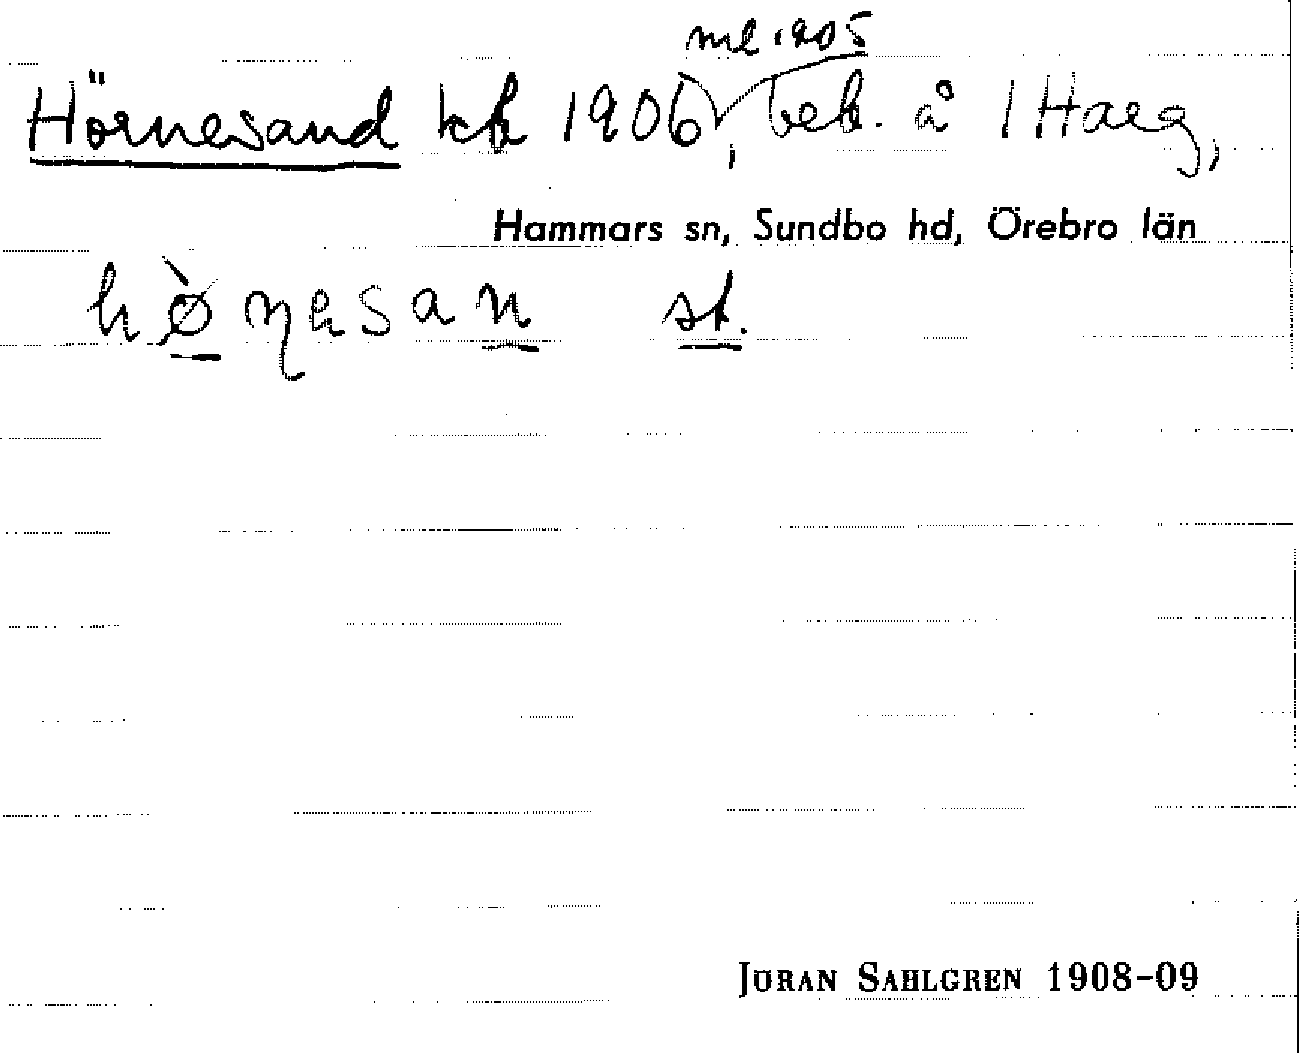 ml 1905
Hörnesand kb 1906, beb. å 1 Haeg,
Hammars sn, Sundbo hd, Örebro län
hø̀ɳesan st.
JÖRAN SAHLGREN 1908-09